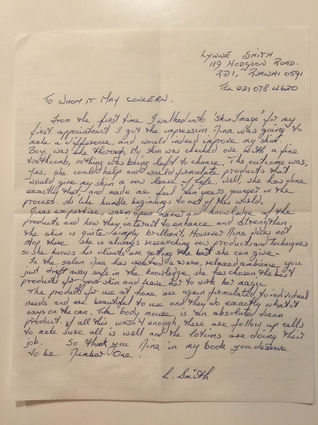 Lynne Smith
119 Hodgson Road.
RD1, Ruawai 0591
Tel. 021 078 4620
To Whom it May Concern.
From the first time I walked into "Skin Image" for my
first appointment I got the impression Nina was going to
make a difference, and would indeed improve my skin.
Boy, was she thorough. My skin was checked over with a fine
toothcomb, nothing was being left to chance. The outcome was,
Yes, she could help and would formulate products that
would give my skin a new lease of life. Well she has done
exactly that, and made me feel years younger in the
process.
Ninas expertise, warm open manner and knowledge of the
products and how they interact to enhance and strengthen
the skin is quite simply brilliant. However Nina does not
stop there. She is always researching new products and techniques
so she knows her clients are getting the best she can give.
In the salon Nina has created a warm relaxed ambience you
just drift away safe in the knowledge she has chosen the best
products for your skin and leave her to work her magic.
The products for use at home are again formulated to individual
needs and are beautiful to use and they do exactly what it
says on the can. The body mousse is an absolute dream
product. If all this wasn't enough there are follow up calls
to make sure all is well and the lotions are doing their
job. So thank you Nina in my book you deserve
to be Number One.
L. Smith